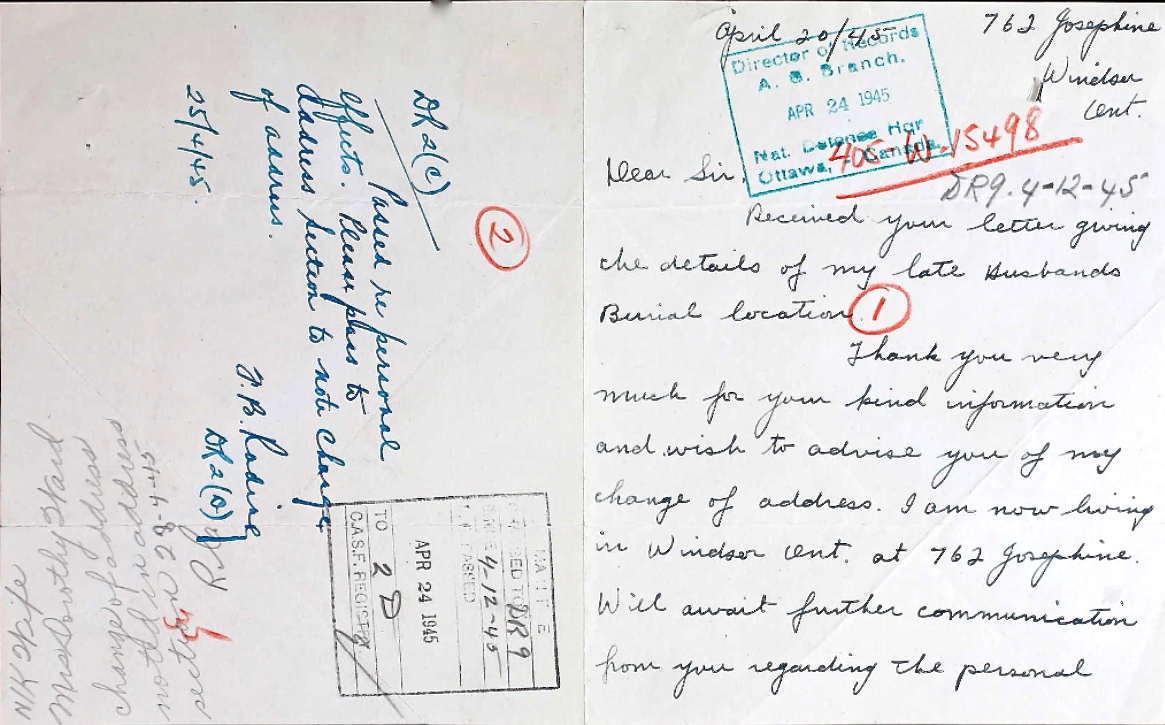 April 20/45
762 Josephine
Windsor
Ont.
Director of Records
A. G. Branch.
APR 24 1945
Nat. Defence Hqr
Ottawa, - Canada.
405-W-15498
DR9. 4-12-45
Dear Sir,
Received your letter giving
the details of my late Husbands
Burial location.
1
Thank you very
much for your kind information
and wish to advise you of my
change of address. I am now living
in Windsor Ont. at 762 Josephine.
Will await further communication
from you regarding the personal
2
DR2(C)
Passed re personal
effects. Please pass to
address section to note change
of address.
25/4/45.
DR2(O)
APR 24 1945
TO 2 D
C.A.S.F. REGISTRY
DR9
4-12-45
PASSED
N/K Wife
Mrs Dorothy Ward
change of address
noted in address
section 28-4-45